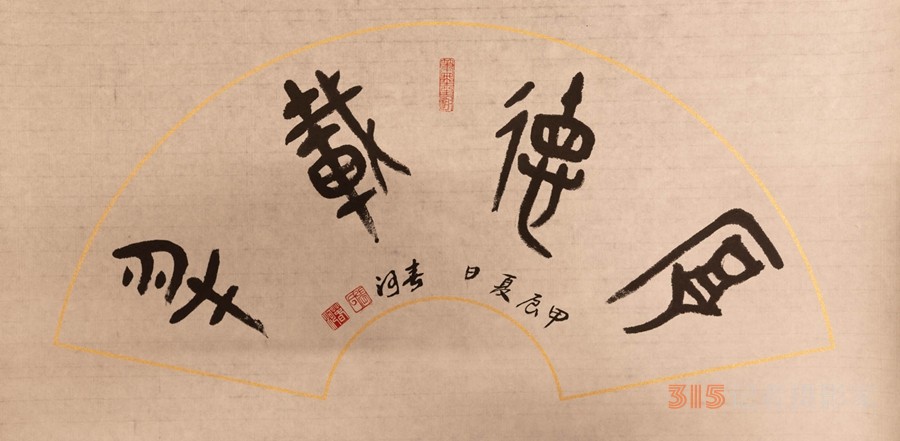 厚德載物
甲辰夏日
春河
315